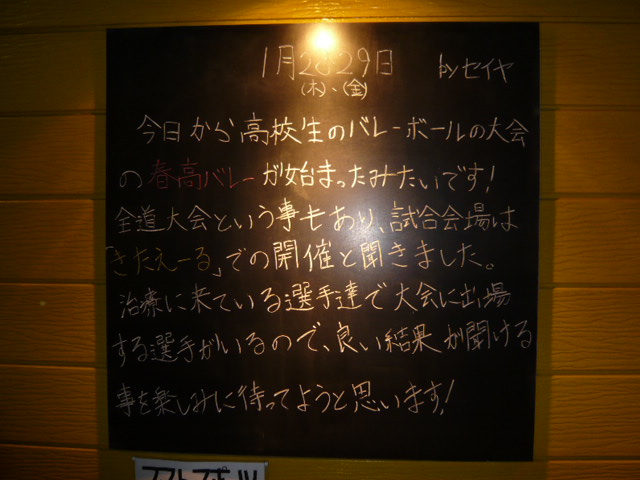 1月28 29日 byセイヤ
(木)、(金)
今日から高校生のバレーボールの大会
の春高バレーが始まったみたいです!
全道大会という事もあり、試合会場は
「きたえーる」での開催と聞きました。
治療に来ている選手達で大会に出場
する選手がいるので、良い結果が聞ける
事を楽しみに待ってようと思います!